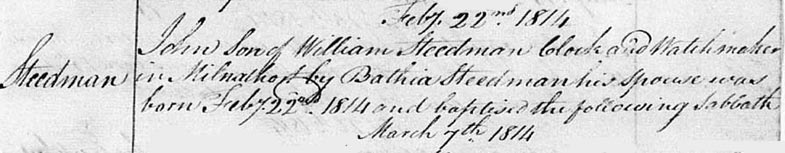 Feby. 22nd 1814
John Son of William Steedman Clock and Watchmaker
Steedman in Milnathort by Bathia Steedman his spouse was
born Feby. 22nd 1814 and baptised the following Sabbath
March 7th 1814